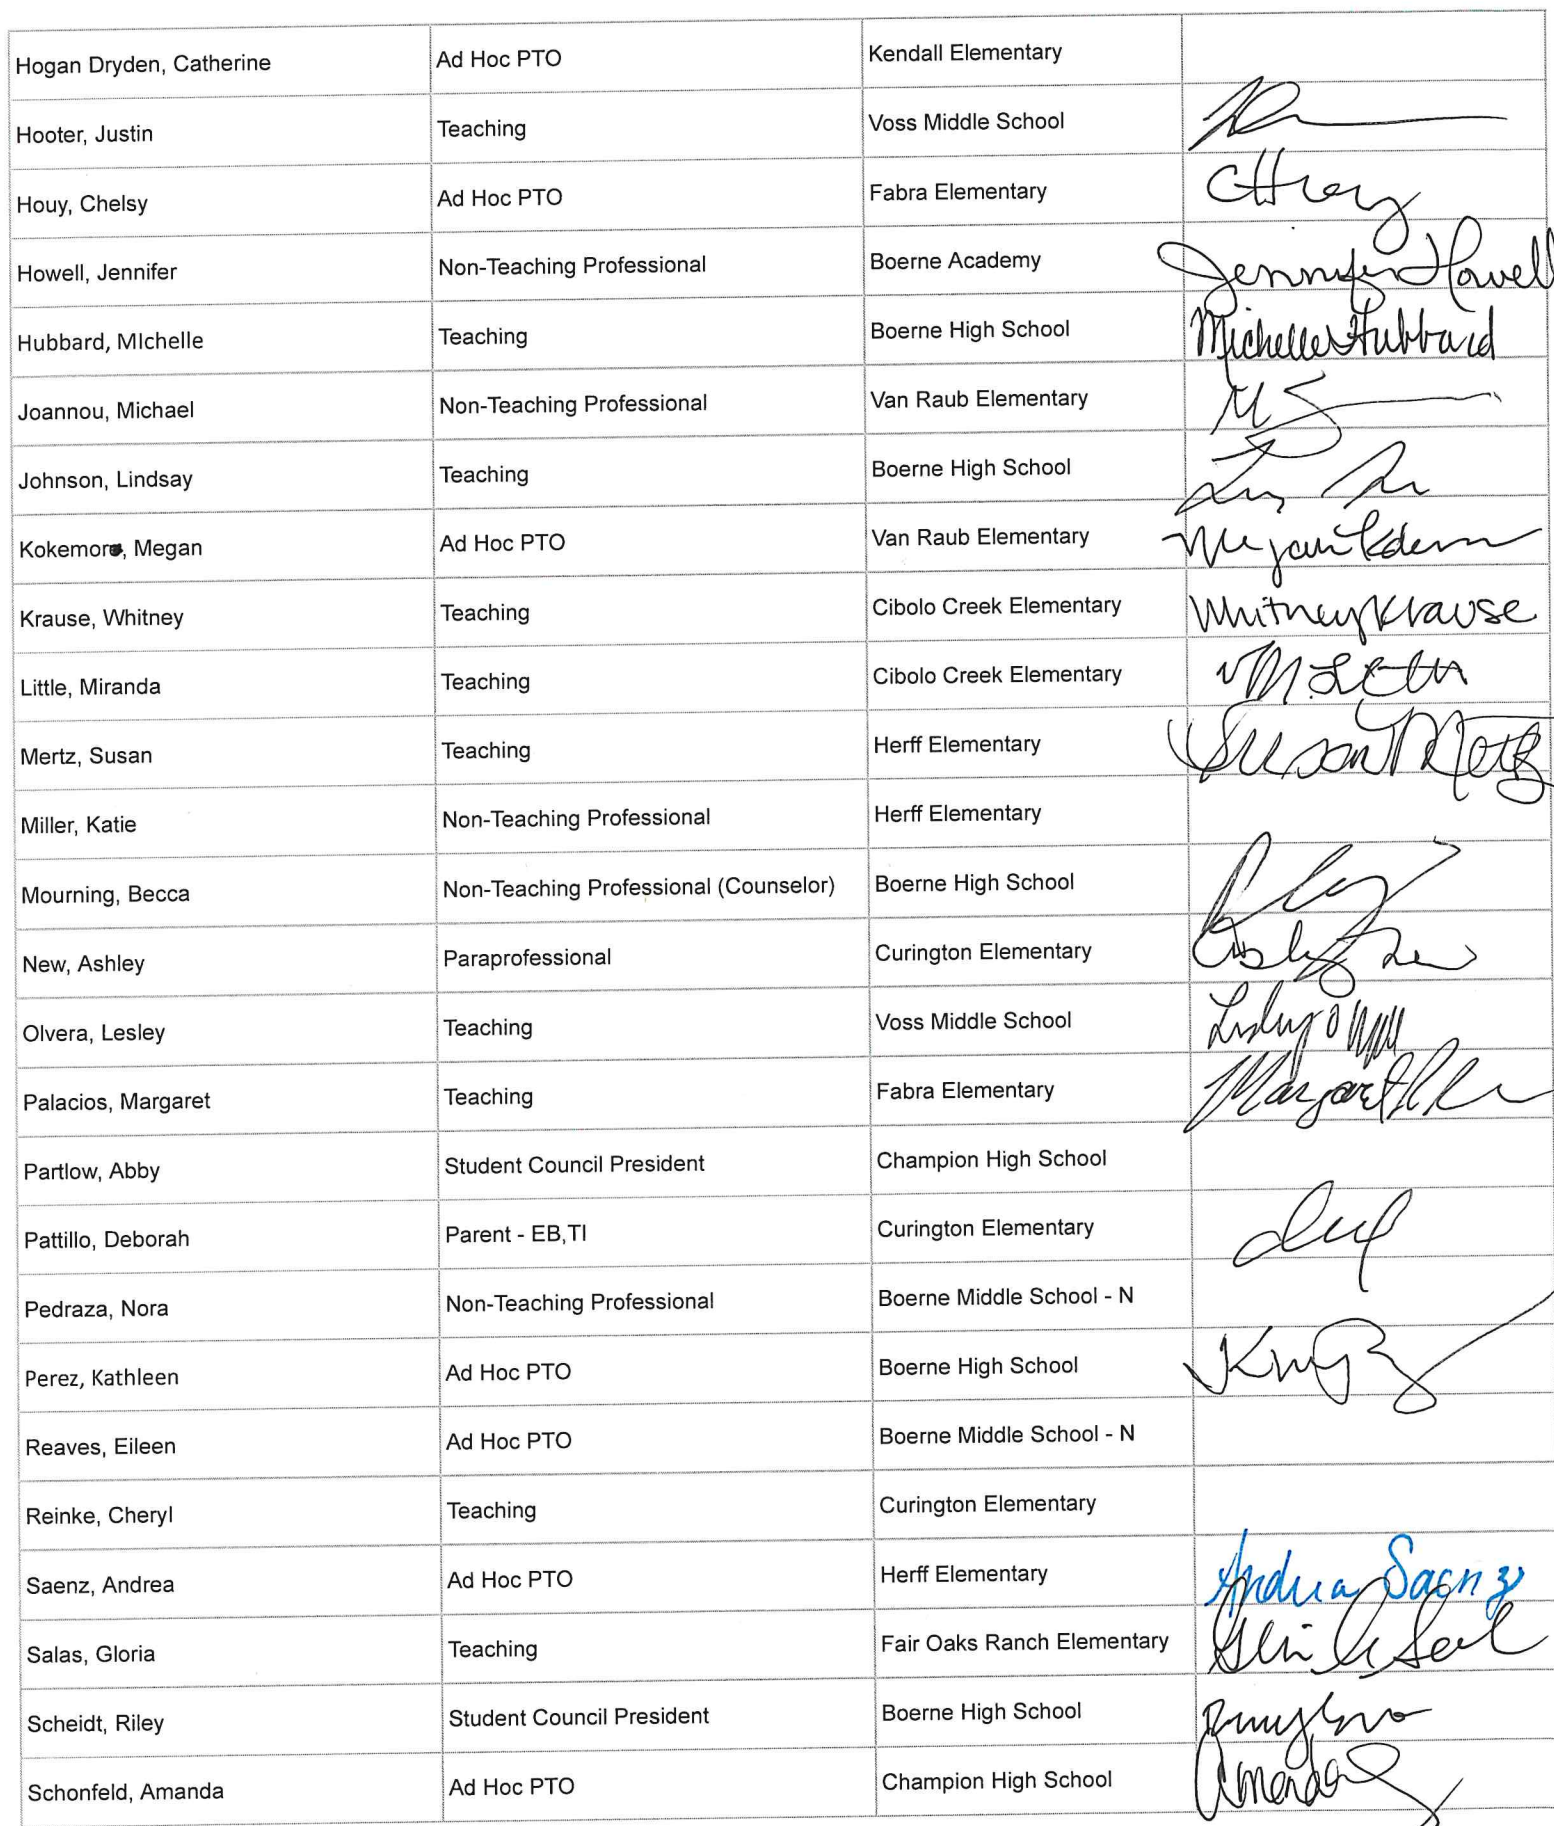 Hogan Dryden, Catherine Ad Hoc PTO Kendall Elementary
Hooter, Justin Teaching Voss Middle School
Houy, Chelsy Ad Hoc PTO Fabra Elementary
Howell, Jennifer Non-Teaching Professional Boerne Academy Jennifer Howell
Hubbard, MIchelle Teaching Boerne High School Michelle Hubbard
Joannou, Michael Non-Teaching Professional Van Raub Elementary
Johnson, Lindsay Teaching Boerne High School
Kokemore, Megan Ad Hoc PTO Van Raub Elementary
Krause, Whitney Teaching Cibolo Creek Elementary Whitney Krause
Little, Miranda Teaching Cibolo Creek Elementary
Mertz, Susan Teaching Herff Elementary Susan Mertz
Miller, Katie Non-Teaching Professional Herff Elementary
Mourning, Becca Non-Teaching Professional (Counselor) Boerne High School
New, Ashley Paraprofessional Curington Elementary
Olvera, Lesley Teaching Voss Middle School
Palacios, Margaret Teaching Fabra Elementary Margaret
Partlow, Abby Student Council President Champion High School
Pattillo, Deborah Parent - EB,TI Curington Elementary
Pedraza, Nora Non-Teaching Professional Boerne Middle School - N
Perez, Kathleen Ad Hoc PTO Boerne High School
Reaves, Eileen Ad Hoc PTO Boerne Middle School - N
Reinke, Cheryl Teaching Curington Elementary
Saenz, Andrea Ad Hoc PTO Herff Elementary Andrea Saenz
Salas, Gloria Teaching Fair Oaks Ranch Elementary
Scheidt, Riley Student Council President Boerne High School
Schonfeld, Amanda Ad Hoc PTO Champion High School Amanda